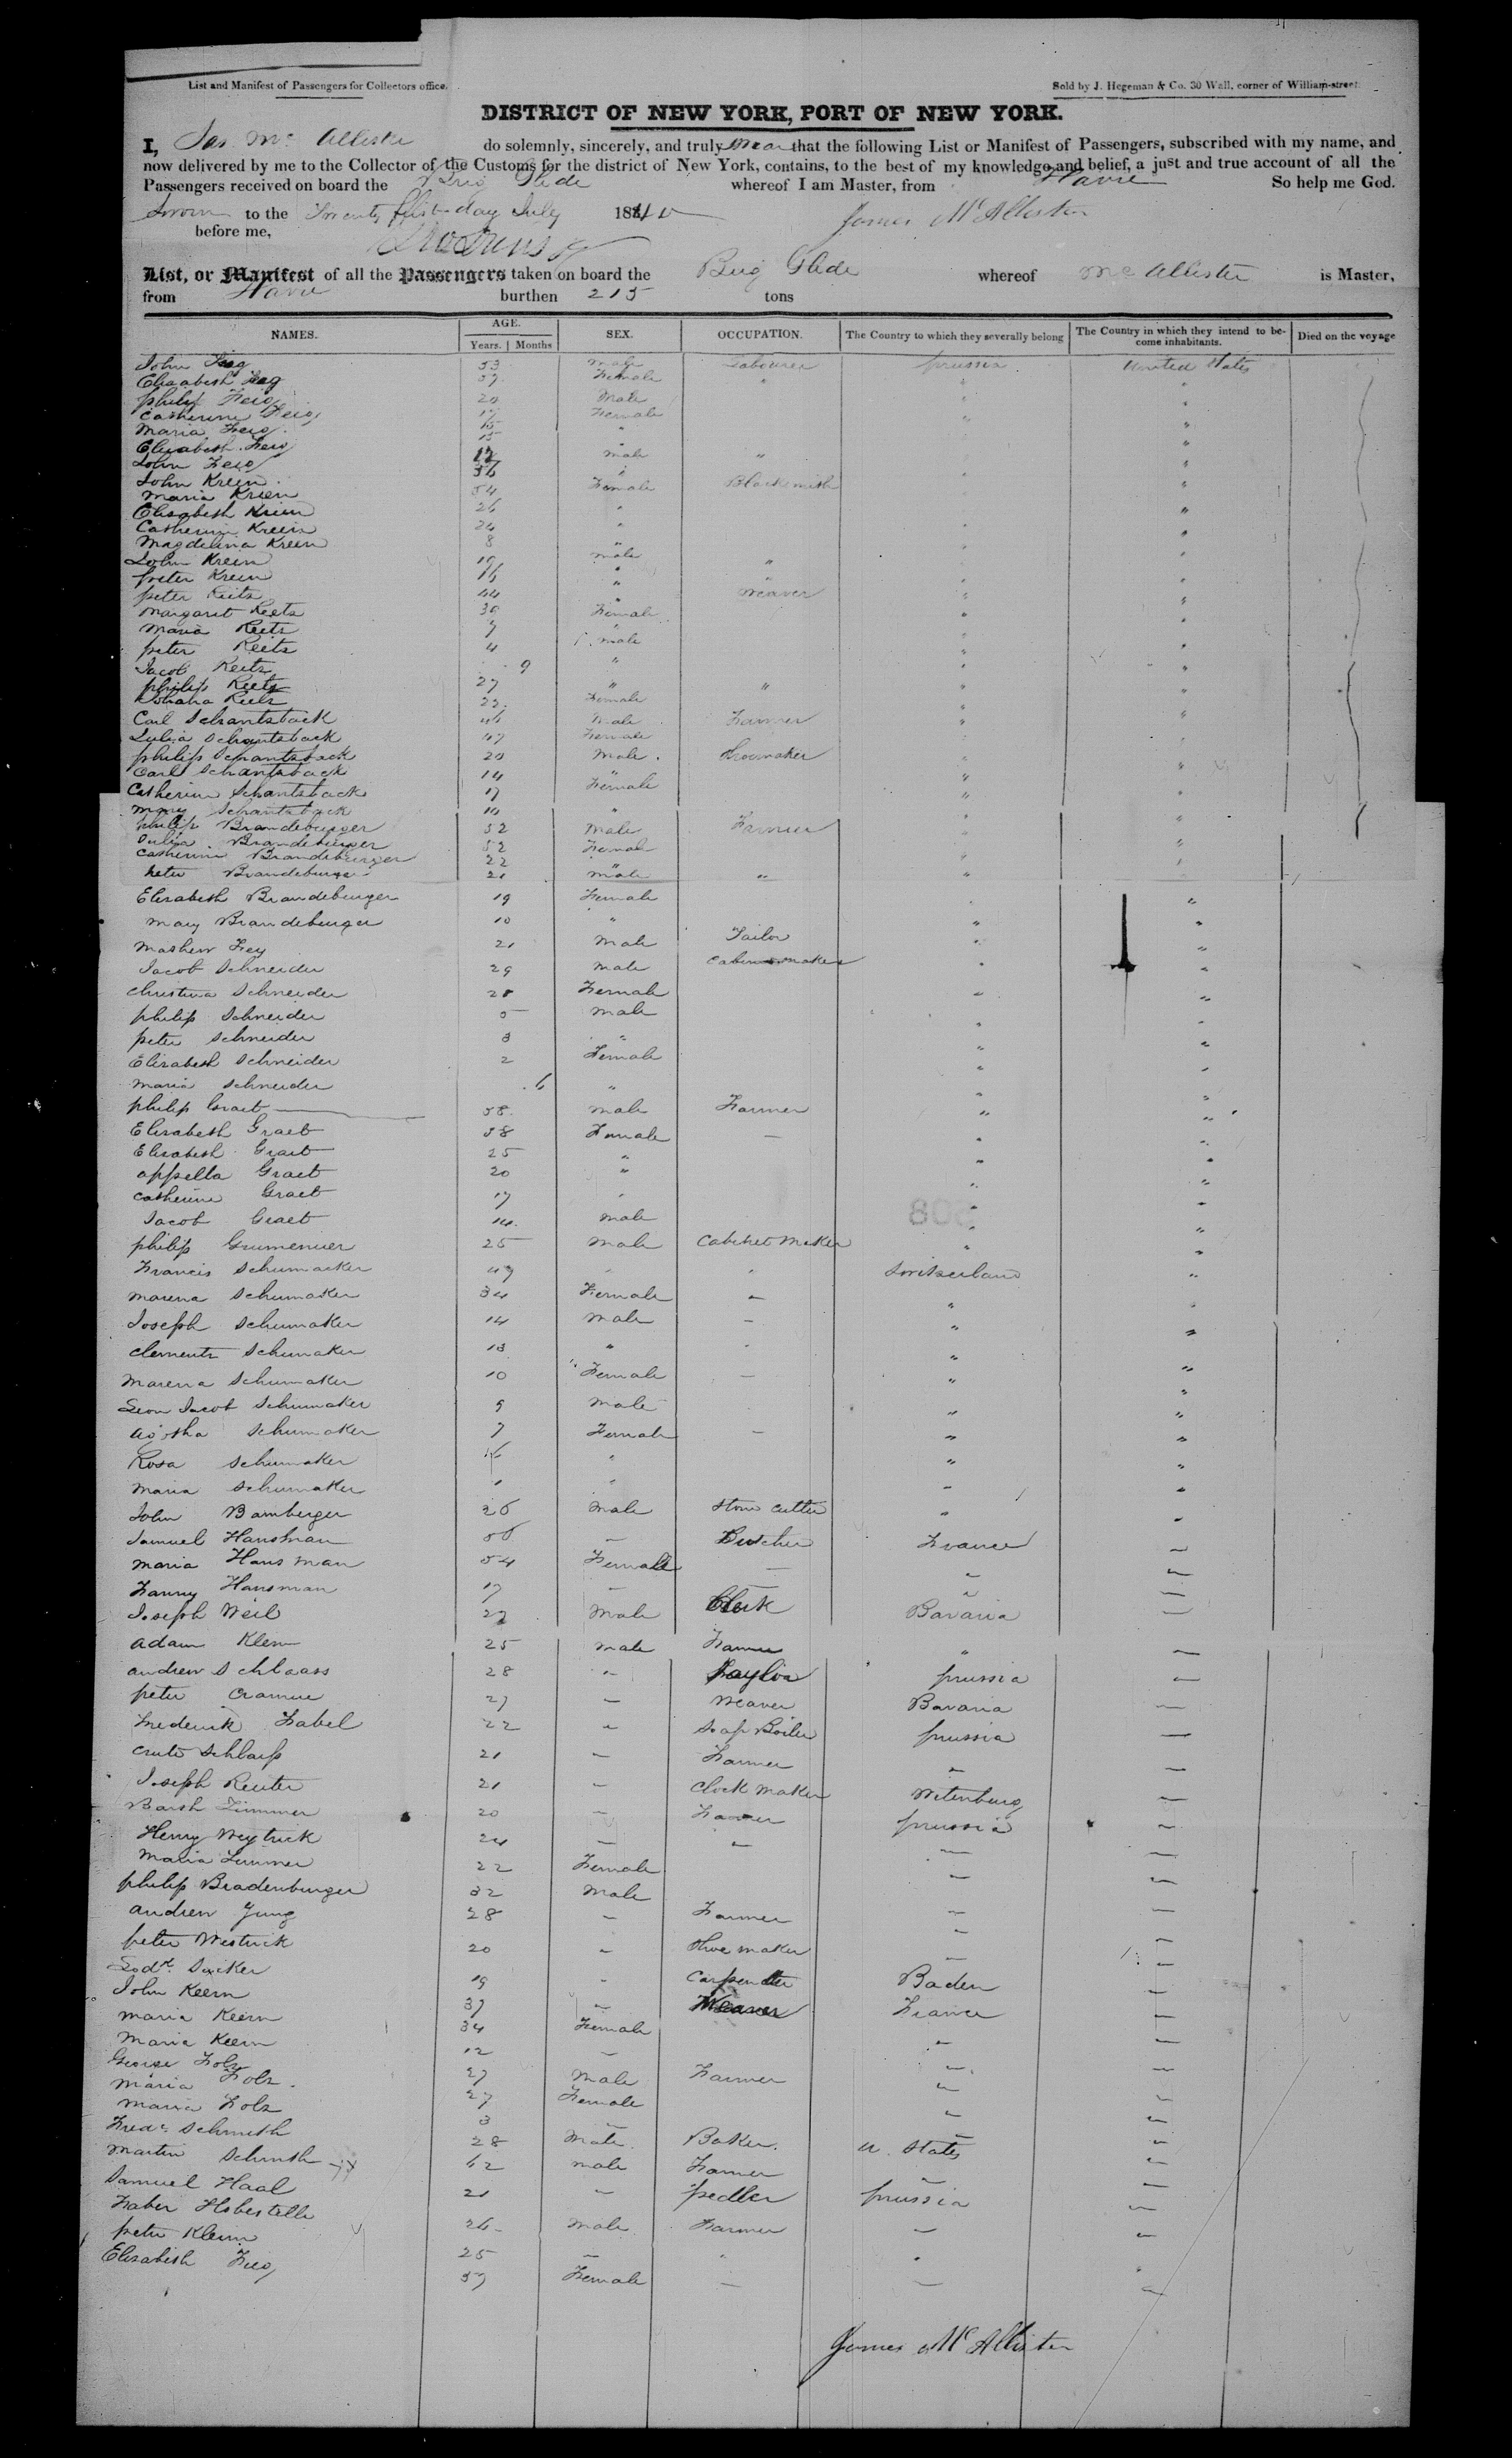 List and Manifest of Passengers for Collectors office.
Sold by J. Hegeman & Co. 30 Wall, corner of William-street.
DISTRICT OF NEW YORK, PORT OF NEW YORK.
I, Jas Mc Allister do solemnly, sincerely, and truly swear that the following List or Manifest of Passengers, subscribed with my name, and
now delivered by me to the Collector of the Customs for the district of New York, contains, to the best of my knowledge and belief, a just and true account of all the
Passengers received on board the Brig Glide whereof I am Master, from Havre So help me God.
Sworn to the Twenty first day July 1840 James McAllister
before me,
List, or Manifest of all the Passengers taken on board the Brig Glide whereof McAllister is Master,
from Havre burthen 215 tons
NAMES. AGE. Years. Months SEX. OCCUPATION. The Country to which they severally belong The Country in which they intend to become inhabitants. Died on the voyage
John Feig 53 Male Labourer prussia United States
Elisabeth Feig Female " " "
philip Feig 20 Male " "
Catherine Feig 17 Female " "
Maria Feig 15 " "
Elisabeth Feig "
John Feig male " "
John Kreen Blacksmith "
Maria Kreen 54 Female "
Elisabeth Kreen 26 " "
Catherine Kreen 24 " "
Magdelina Kreen 8 " "
John Kreen male " "
peter Kreen 16 " " "
peter Reitz 44 " Weaver " "
Margaret Reetz 39 Female " "
Maria Reetz 7 " "
peter Reetz 4 male " "
Jacob Reetz 9 " " "
philip Reetz 27 " " " "
Johana Reetz 22 Female " "
Carl Schantzback 46 Male Farmer " "
Julia Schantzback 47 Female
philip Schantzback 20 Male Shoemaker " "
Carl Schantzback 14 " " "
Catherine Schantzback 17 Female " "
mary Schantzback 10 "
philip Brandeburger 52 Male Farmer " "
Julia Brandeburger 52 Female " "
Catherine Brandeburger 22 " " "
peter Brandeburger 21 male " "
Elisabeth Brandeburger 19 Female " "
mary Brandeburger 10 " " "
Mathew Fey 21 Male Tailor " "
Jacob Schneider 29 male Cabinetmaker " "
Christina Schneider 28 Female " "
philip Schneider 5 male " "
peter Schneider 3 " " "
Elisabeth Schneider 2 Female " "
Maria Schneider 6 " " "
philip Graet 58 male Farmer " "
Elisabeth Graet 58 Female — " "
Elisabeth Graet 25 " " "
appella Graet 20 " " "
Catherine Graet 17 " " "
Jacob Graet 14 male " "
philip Grumenuer 25 Male Cabinet Maker " "
Francis Schumacker 47 " " Switzerland "
Marena Schumaker 34 Female — " "
Joseph Schumaker 14 male — " "
Clements Schumaker 13 " " " "
Marena Schumaker 10 Female — " "
Leon Jacob Schumaker 9 Male " "
Agatha Schumaker 7 Female — " "
Rosa Schumaker " " "
Maria Schumaker 1 " " "
John Bamberger 26 Male Stone cutter " "
Samuel Hansman — Butcher France —
Maria Hansman 54 Female — " —
Fanny Hansman 17 — — " —
Joseph Weil 27 Male Clerk Bavaria —
Adam Klem 25 male Farmer " —
Andrew Schlaass 28 " Taylor prussia —
peter Cramue 27 — Weaver Bavaria —
Frederick Zabel 22 — Soap Boiler prussia —
21 — Farmer — —
Joseph Reuter 21 — Clock Maker Witenburg —
Zimmer 20 — Farmer prussia —
Henry Weytrick 24 — — — —
Maria Zimmer 22 Female — —
philip Bradenburger 32 Male — —
Andrew Jung 28 — Farmer — —
peter Westrick 20 — Shoe maker — —
19 — Carpenter Baden —
John Keern 37 — Weaver France —
Maria Keern 34 Female — —
Maria Keern 12 — — —
George Folz 27 Male Farmer — —
Maria Folz 27 Female — —
Maria Folz 3 — — —
Fredk Schmith 28 Male Baker. U. States —
Martin Schmith 62 male Farmer — —
Samuel Haal 21 — pedler prussia —
Male Farmer — —
peter Klem 25 — " " "
Elisabeth Feig Female — — —
James McAllister